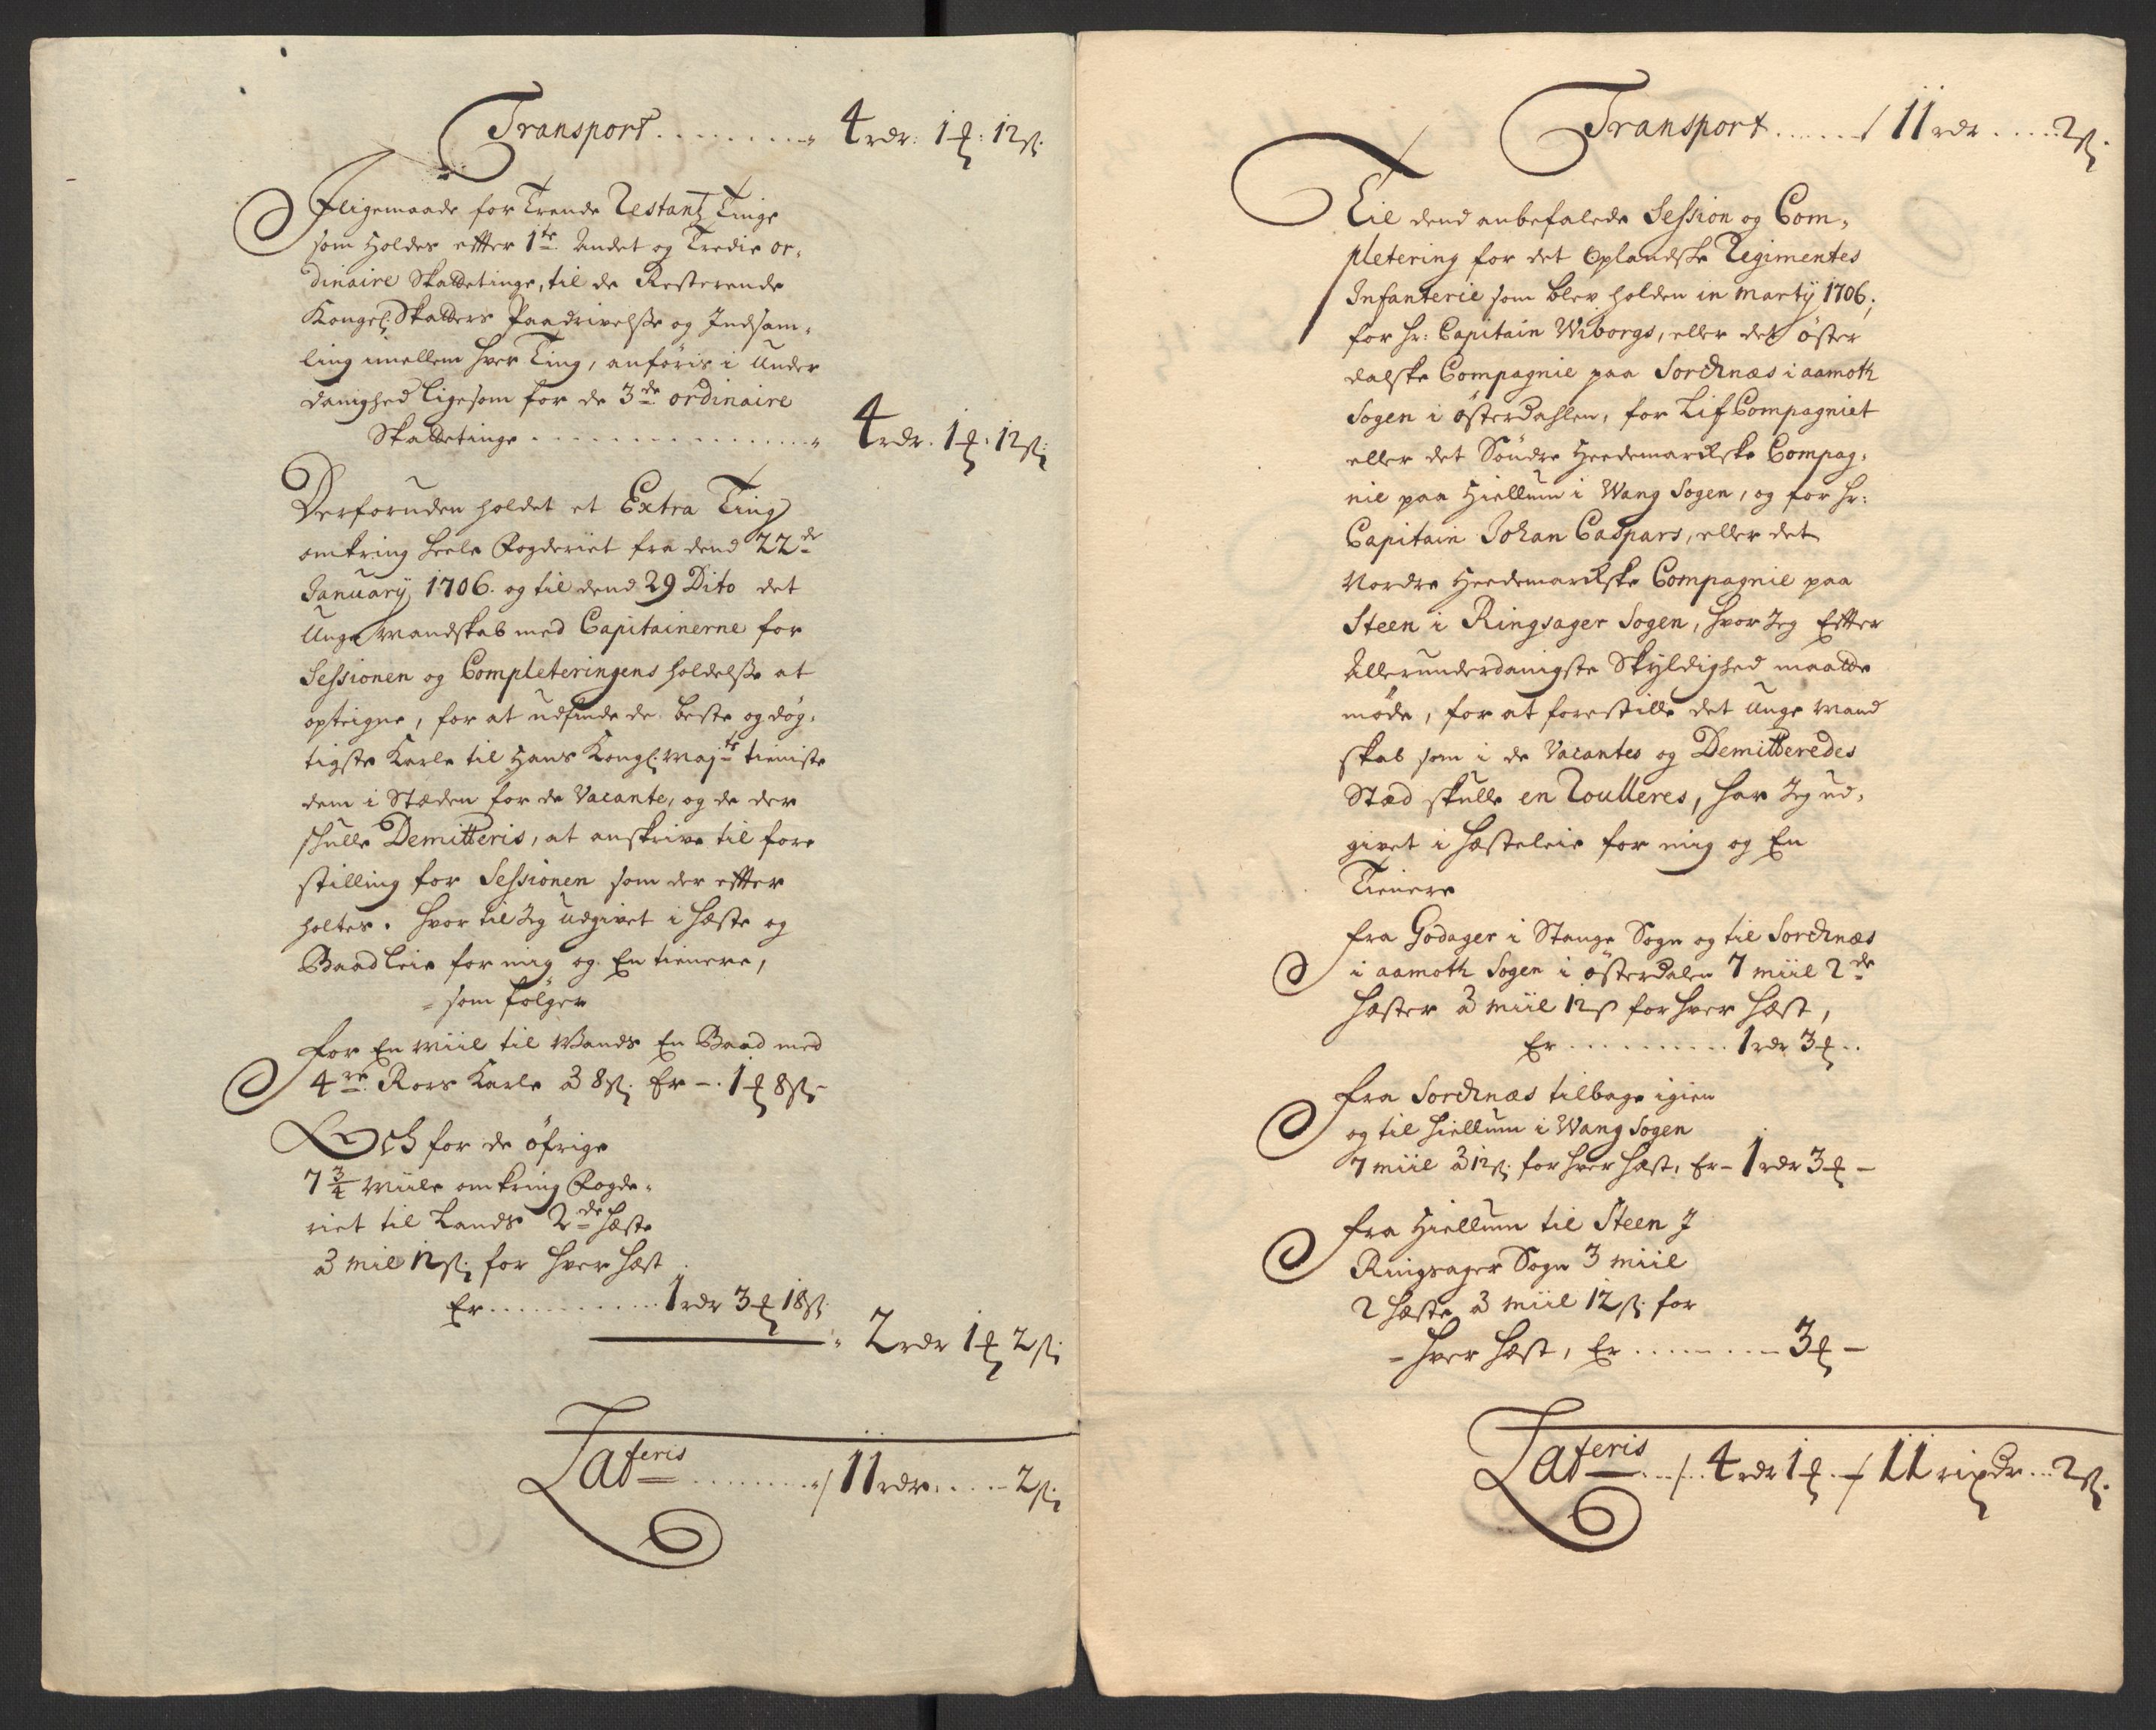 Transport . . . . . . . . 4 rdr: 1 ₰: 12 ß.
Jligemaade for Trende Restantz Tinge
som Holdes effter 1te Andet og Tredie or,
dinaire Skattetinge, til de Resterende
Kongel: Skatters Paadrivelße og Indsam,
ling imellem hver Ting, anföris i Under
danighed ligesom for de 3de ordinaire
Skattetinge . . . . . . . . . . . . . 4 rdr. 1 ₰: 12 ß:
Derforuden holdet et Extra Ting
omkring heele Fogderiet fra dend 22de
January 1706. og til dend 29 Dito det
Unge Mandskab med Capitainerne for
Sessionen og Completeringens holdelße at
opteigne, for at udfinde de beste og dög,
tigste Karle til Hans Kongl: Majts tieniste
dem i Stæden for de Vacante, og de der
skulle Demitteris, at anskrive til fore
stilling for Sessionen som der effter
holtes. Hvor til Jeg udgivet i Hæste og
Baadleie for mig og En tienere,
som fölger
for En Miil til Vands En Baad med
4re Rors Karle à 8 ß. Er - . 1 ₰ 8 ß -
Och for de öfrige
7 3/4 Miile omkring Fogde,
riet til Lands 2de Hæste
à Mil 12 ß; for hver Hæst
Er . . . . . . . . . . . 1 rdr 3 ₰ 18 ß.
2 rdr 1 ₰ 2 ß:
Lateris . . . . . . . . ./ 11 rdr. . . . . 2 ß:
Transport . . . . . . / 11 rdr . . . . . 2 ß.
Til dend anbefalede Session og Com,
pletering for det Oplandske Regimentes
Infanterie som blev holden in Marty 1706,
for Hr: Capitain Wiborgs, eller det öster
dalske Compagnie paa Sorchnæs i aamoth
Sogen i österdahlen, for Lif Compagniet
eller det Söndre Heedemarckske Compag,
nie paa Hiellum i Wang Sogen, og for Hr:
Capitain Johan Caspars, eller det
Nordre Heedemarckske Compagnie paa
Steen i Ringsager Sogen, hvor Jeg Effter
Allerunderdanigste Skyldighed maatte
möde, for at forestille det Unge Mand
skab som i de Vacantes og Demitteredes
Stæd skulle en Roulleres, har Jeg ud,
givet i Hæsteleie for mig og En
Tienere
fra Godager i Stange Sogn og til Sorchnæs
i aamoth Sogen i österdalen 7 miil 2de
Hæster à miil 12 ß for hver Hæst,
Er . . . . . . . . . . 1 rdr 3 ₰ . .
fra Sorchnæs tilbage igien
og til Hiellum i Wang Sogen
7 miil à 12 ß. for hver Hæst, Er - 1 rdr 3 ₰ -
fra Hiellum til Steen J
Ringsager Sogn 3 miil
2 Hæste à miil 12 ß. for
hver Hæst, Er . . . . . . . - 3 ₰ -
Lateris . . ./. . 4 rdr 1 ₰ . / 11 rixdr . . . 2 ß.